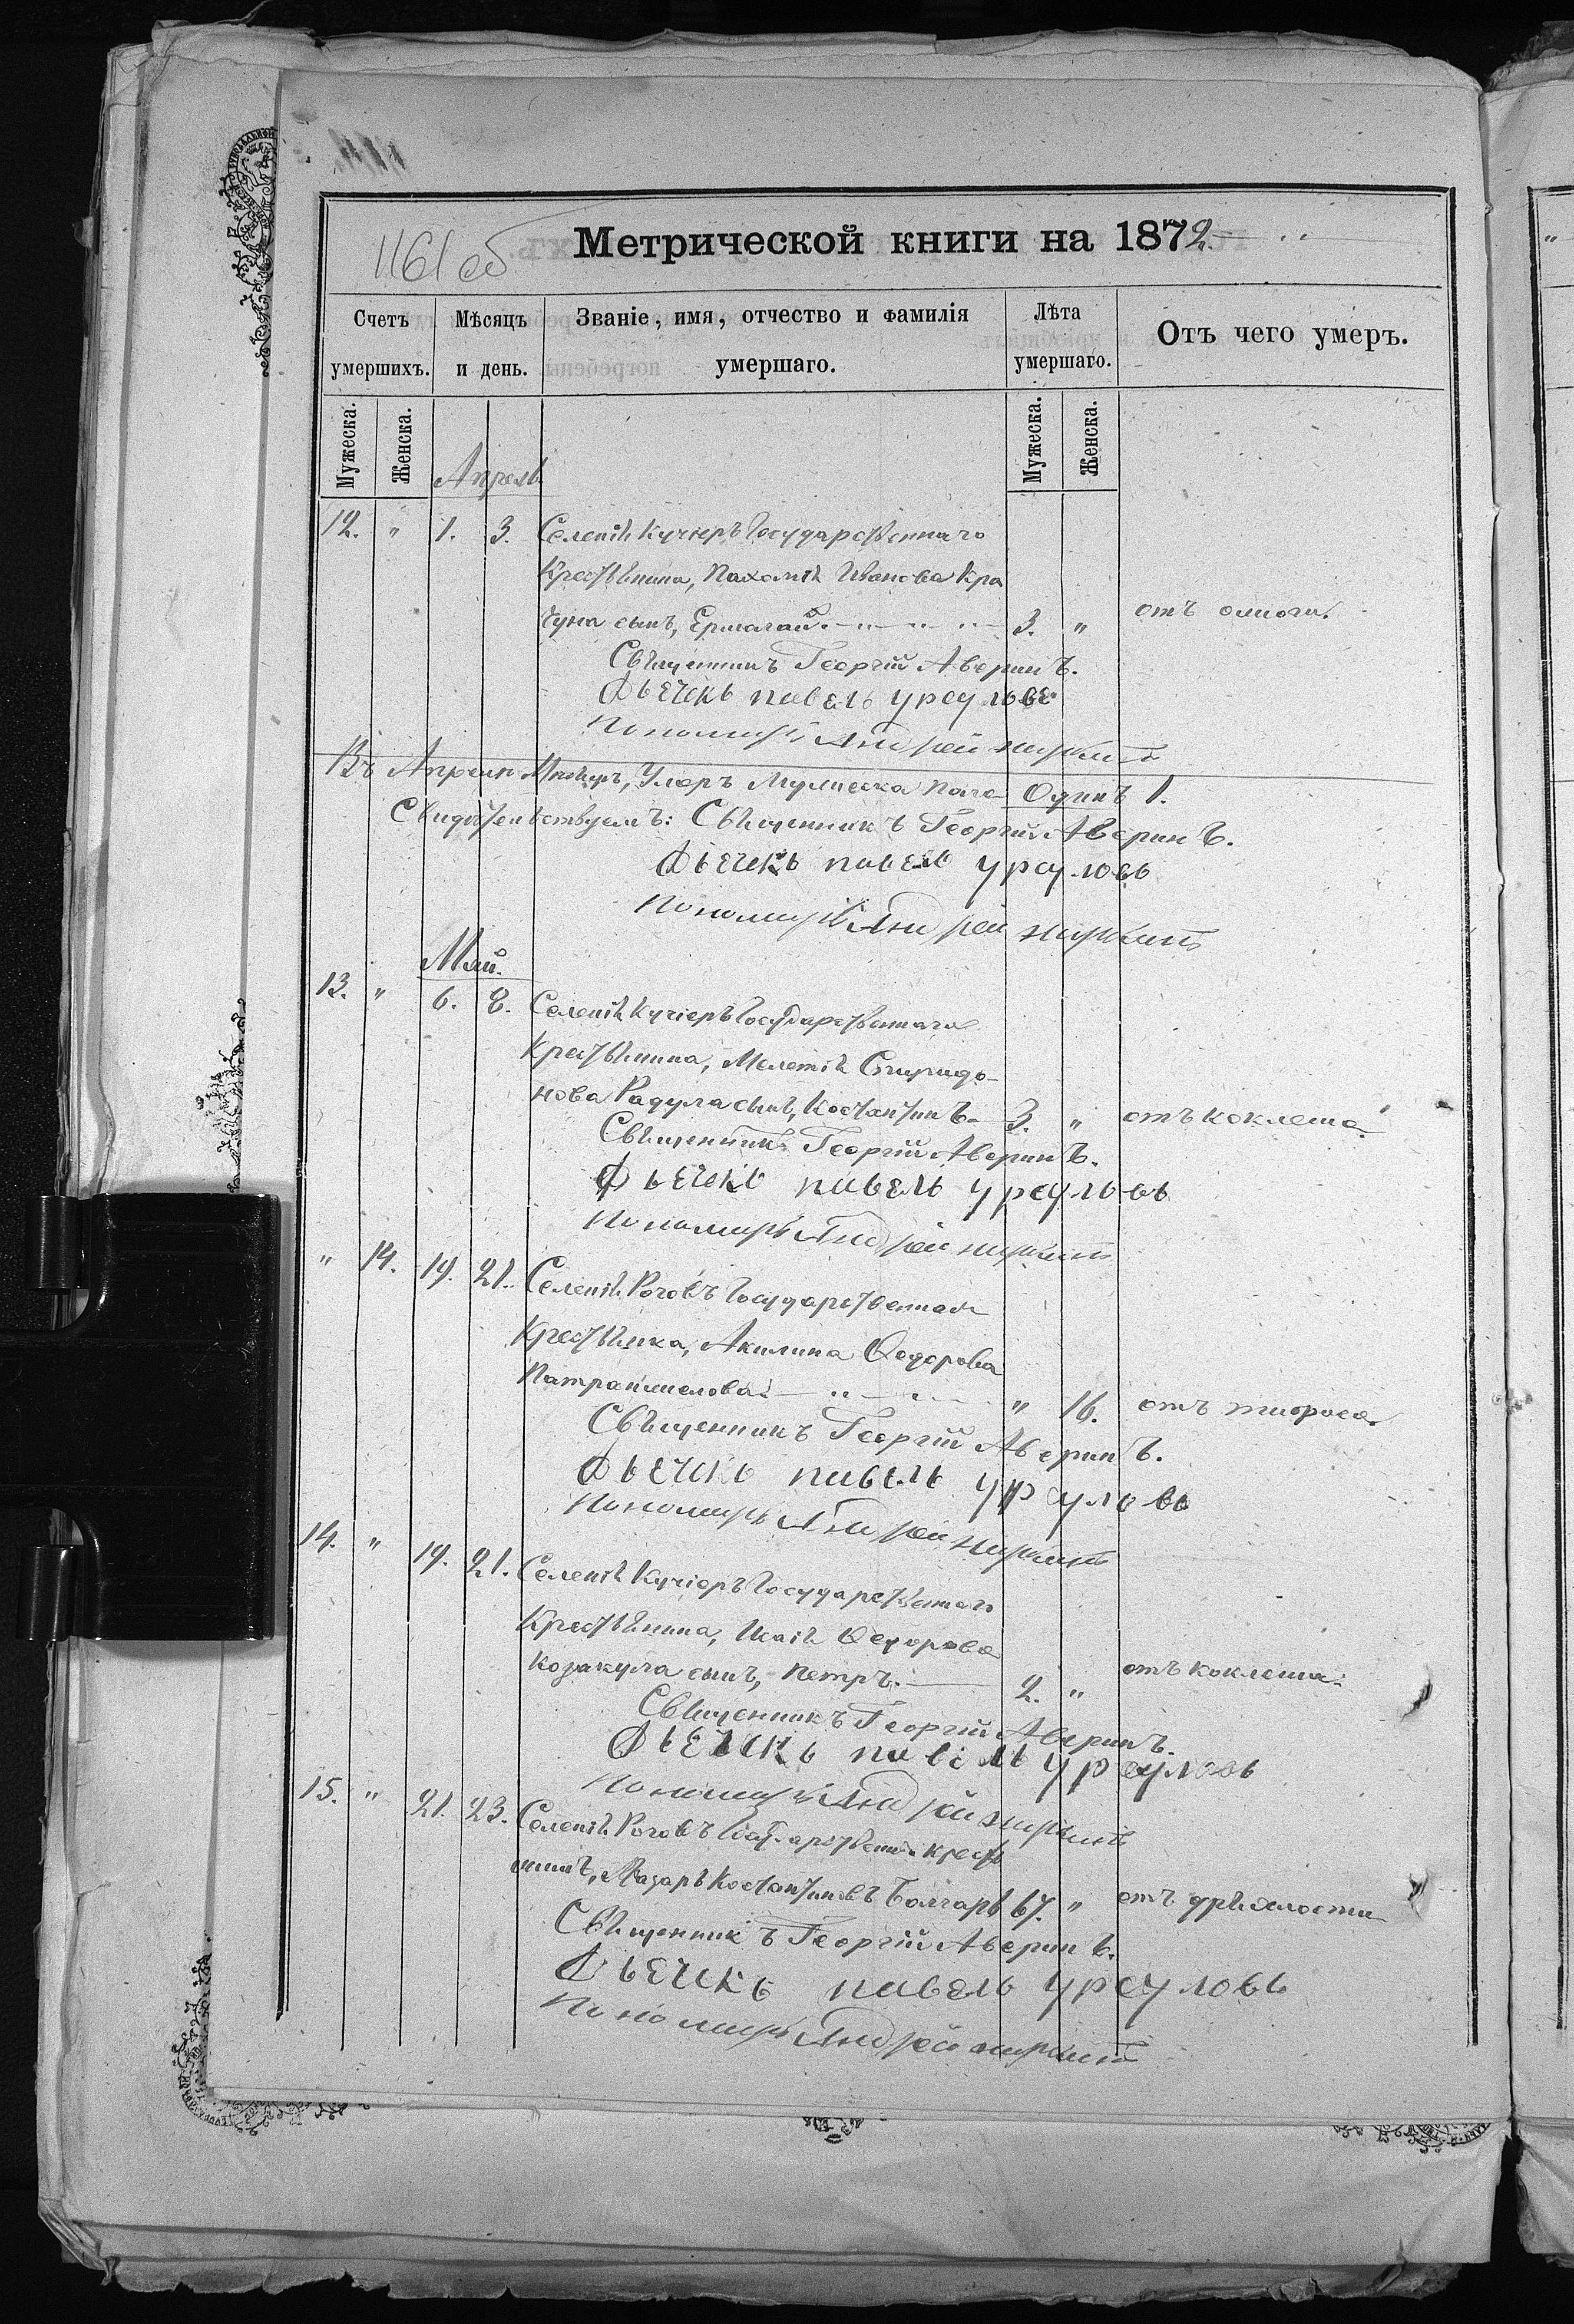 1161 об
Метрической книги на 1872.
Счетъ умершихъ.
Мѣсяцъ и день.
Званіе, имя, отчество и фамилія умершаго.
Лѣта умершаго.
Отъ чего умеръ.
Мужеска.
Женска.
Мужеска.
Женска.
Апрель
12. " 1. 3. Селенія Кучіеръ Государственнаго
Крестьянина, Пахомія Иванова Кра
чуна сынъ, Ермолай. 3. "
Священникъ Георгій Аверинъ.
Дьечекъ павелъ урсуловъ
Пономарь Андрей
Въ Апреле Месяце, Умеръ Мужеска пола Одинъ 1.
Свидетельствуемъ: Священникъ Георгій Аверинъ.
Дьечекъ павелъ урсуловъ
Пономарь Андрей
Май.
13. " 6. 8. Селенія Кучіеръ Государственнаго
Крестьянина, Мелетія Спиридо-
нова Радула сынъ, Костантинъ 3. " отъ коклеша.
Священникъ Георгій Аверинъ.
Дьечекъ павелъ урсуловъ
Пономарь Андрей
" 14. 19. 21. Селенія Рогов Государственная
Крестьянка, Акилина Ѳедорова
" 16. отъ
Священникъ Георгій Аверинъ.
Дьечекъ павелъ урсуловъ
Пономарь Андрей
14. " 19. 21. Селенія Кучіеръ Государственнаго
Крестьянина, Исаія Ѳедорова
Козакула сынъ, Петръ. 2. " отъ коклеша.
Священникъ Георгій Аверинъ.
Дьечекъ павелъ урсуловъ
Пономарь Андрей
15. " 21. 23. Селенія Рогов Кресть
янинъ, Лазарь Костантиновъ Болгарь 67. " отъ дряхлости
Священникъ Георгій Аверинъ.
Дьечекъ павелъ урсуловъ
Пономарь Андрей